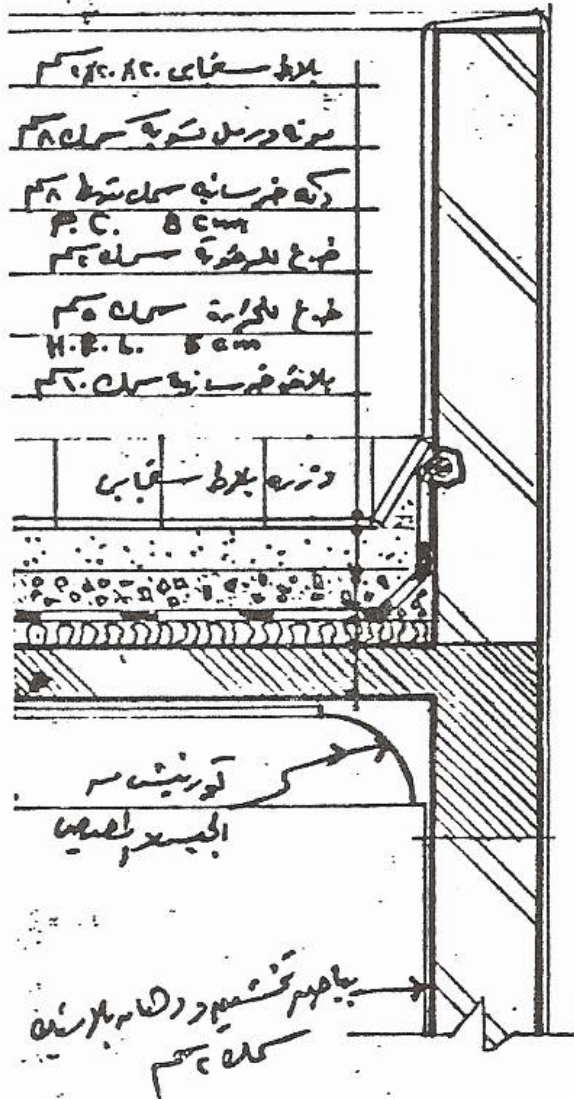 بلاط سنجابى ٢٠×٢٠×٢سم
مونه ورمل تسوية سمك ٨سم
دكه خرسانيه سمك متوسط ٨سم
P. C. 8 cm
طبقة للرطوبة سمك ٢سم
طبقة للحرارة سمك ٥سم
H. R. L. 5 cm
بلاطة خرسانية سمك ١٠سم
وزره بلاط سنجابى
كورنيش من
الجبس المصيص
بياض تخشين ودهان بلاستيك
سمك ٢سم